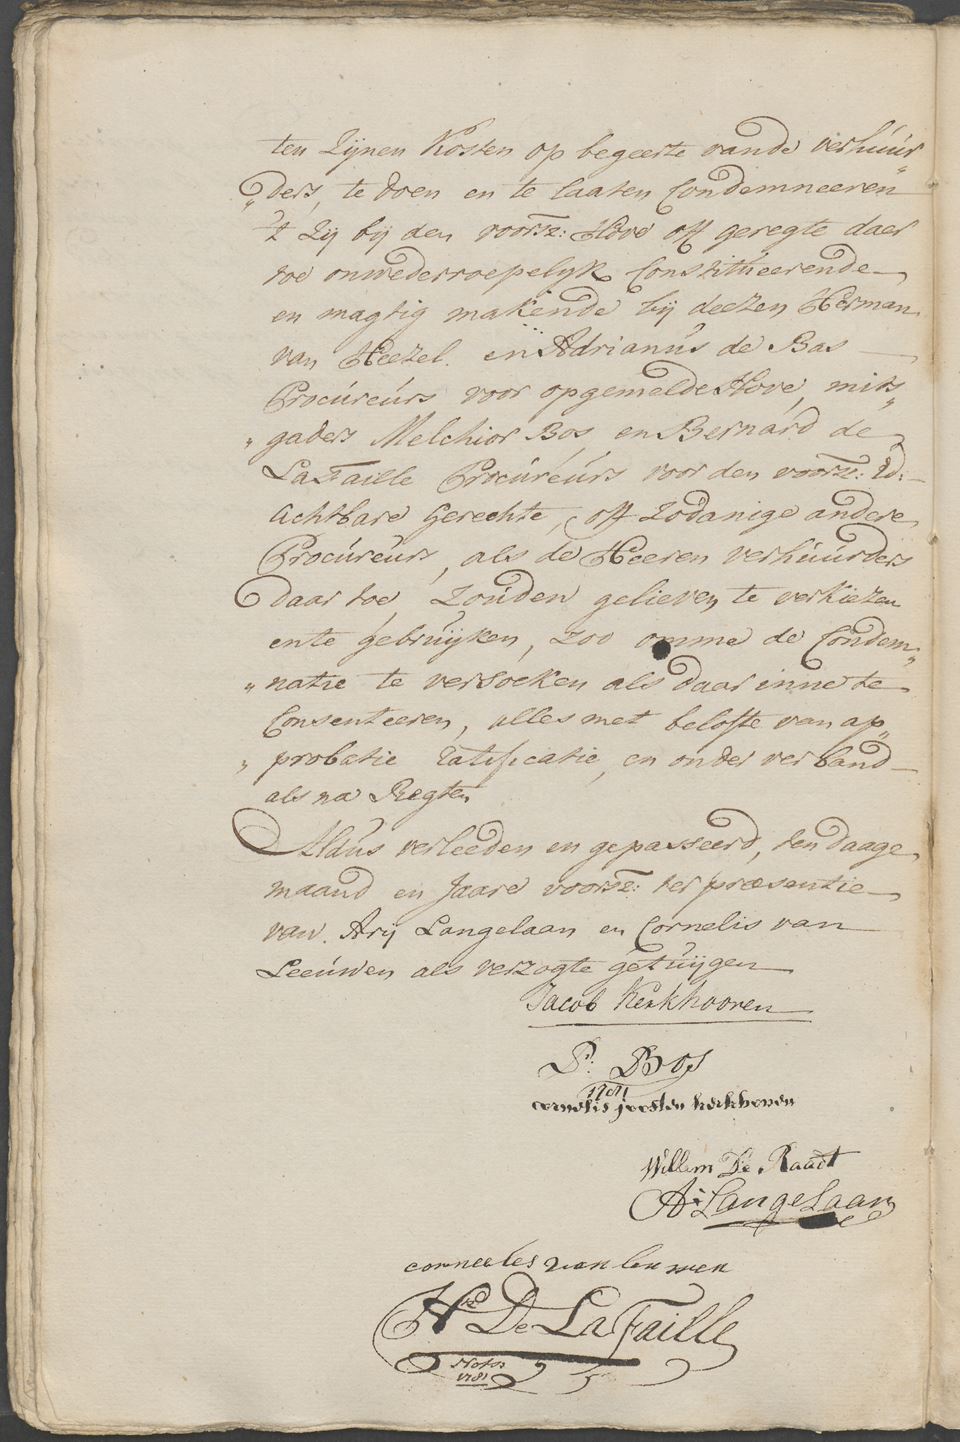 ten Zijnen Kosten op begeerte vande verhuur„
„ders, te doen en te laaten Condemneeren
't Zij bij den voorsz: Hove off geregte daer
toe onwederroepelyk Constitueerende
en magtig makende bij deezen Herman
van Heezel. en Adrianus de Bas
Procureurs voor opgemelde Hove, mits„
„gaders Melchior Bos, en Bernard de
La Faille Procureurs voor den voorsz: Ed:
Achtbare Gerechte, off Zodanige andere
Procureurs, als de Heeren verhuurders
daar toe, Zouden gelieven te verkiezen
en te gebruijken, zoo omme de Condem„
„natie te versoeken als daar inne te
Consenteeren, alles met belofte van ap„
„probatie ratificatie, en onder verband
als na Regten
Aldus verleeden en gepasseerd, ten daage
maand en Jaare voorsz: ter præsentie
van. Arij Langelaan en Cornelis van
Leeuwen als verzogte getuijgen
Jacob Kerkhooven
P: Bos
1781
cornelis joosten kerkhoven
Willem De Raadt
A: Langelaan
corneeles van leuwen
H: De La Faille
Nots
1781